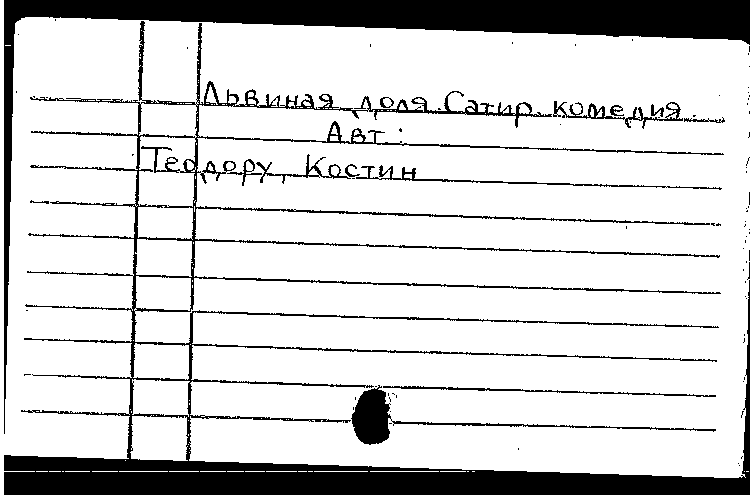 Львиная доля. Сатир. комедия.
Авт.:
Теодору, Костин